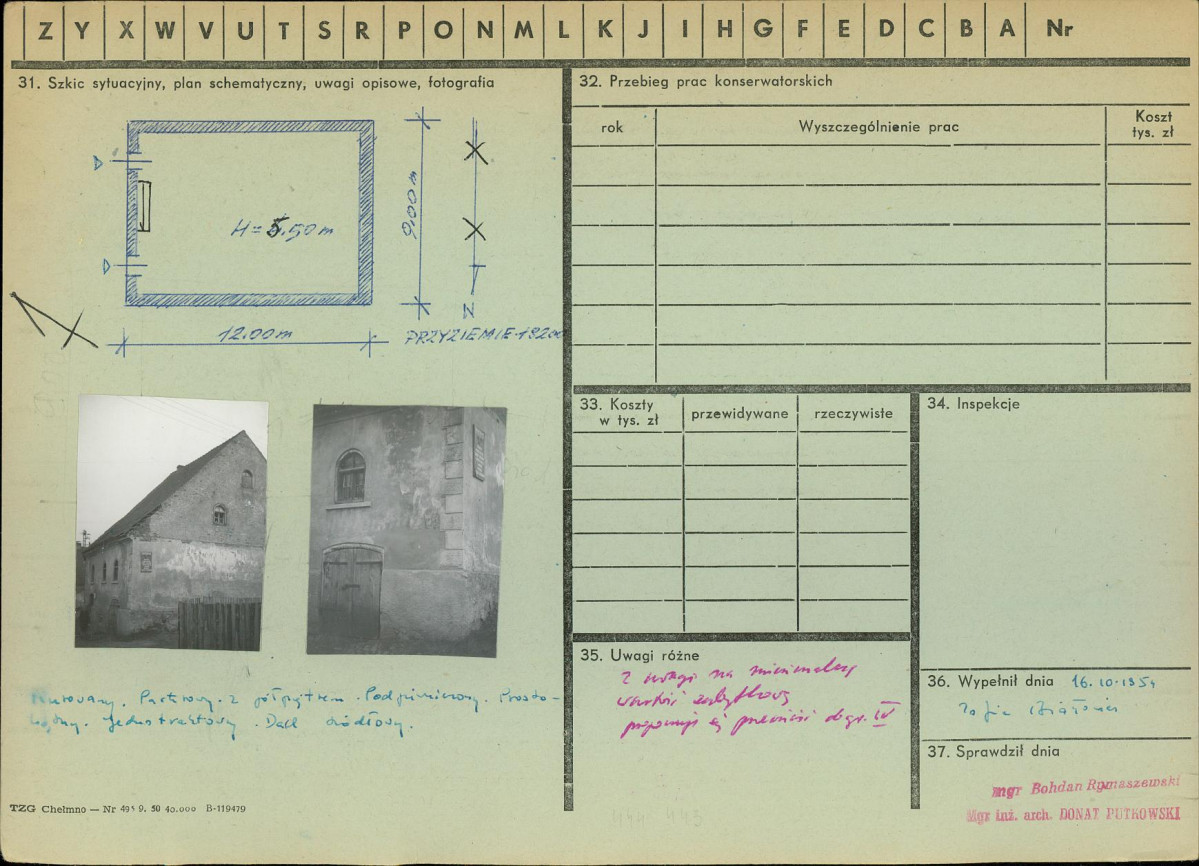 Z Y X W V U T S R P O N M L K J I H G F E D C B A Nr
31. Szkic sytuacyjny, plan schematyczny, uwagi opisowe, fotografia
H=5.50m
9.00 m
N
12.00m
PRZYZIEMIE-1:200
Murowany. Parterowy. z półpiętrem. Podpiwniczony. Prosto-
kątny. Jednotraktowy. Dach siodłowy.
TZG Chełmno — Nr 495 9. 50 40.000 B-119479
32. Przebieg prac konserwatorskich
rok Wyszczególnienie prac Koszt
tys. zł
33. Koszty
w tys. zł przewidywane rzeczywiste
34. Inspekcje
35. Uwagi różne
z uwagi na minimalną
wartość zabytkową
proponuję się przenieść do gr. IV
36. Wypełnił dnia 16.10.1959
Zofia
37. Sprawdził dnia
mgr Bohdan Rymaszewski
Mgr inż. arch. DONAT PUTKOWSKI
444 443